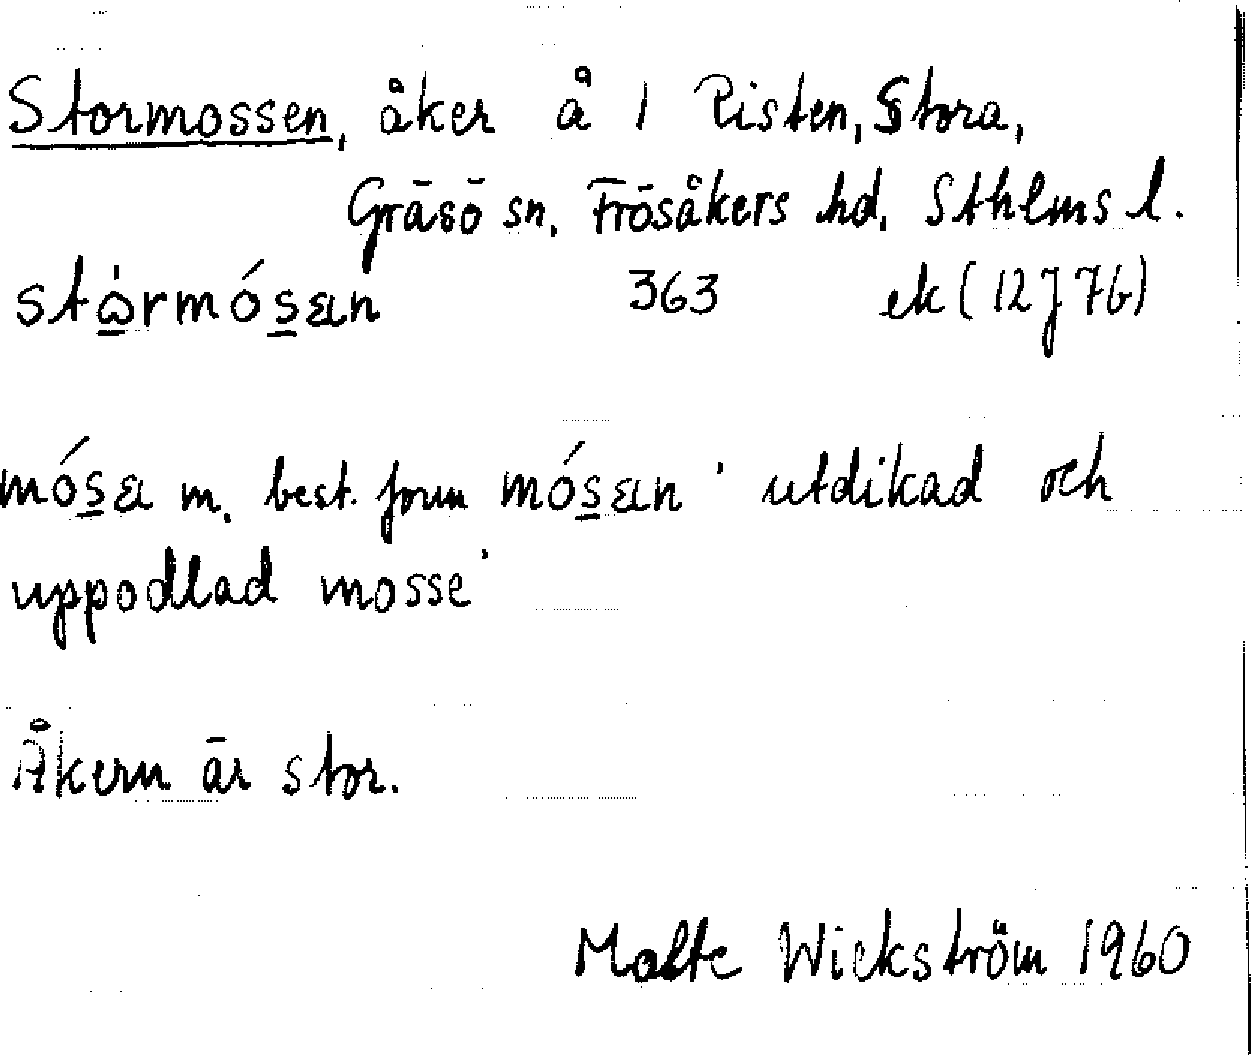 Stormossen, åker å 1 Risten, Stora,
Gräsö sn. Frösåkers hd. Sthlms l.
stὼ̲rmós̲ɛn 363 ek (12J7b)
mós̲ɛ m. best. form mós̲ɛn ' utdikad och
uppodlad mosse '
Åkern är stor.
Malte Wickström 1960